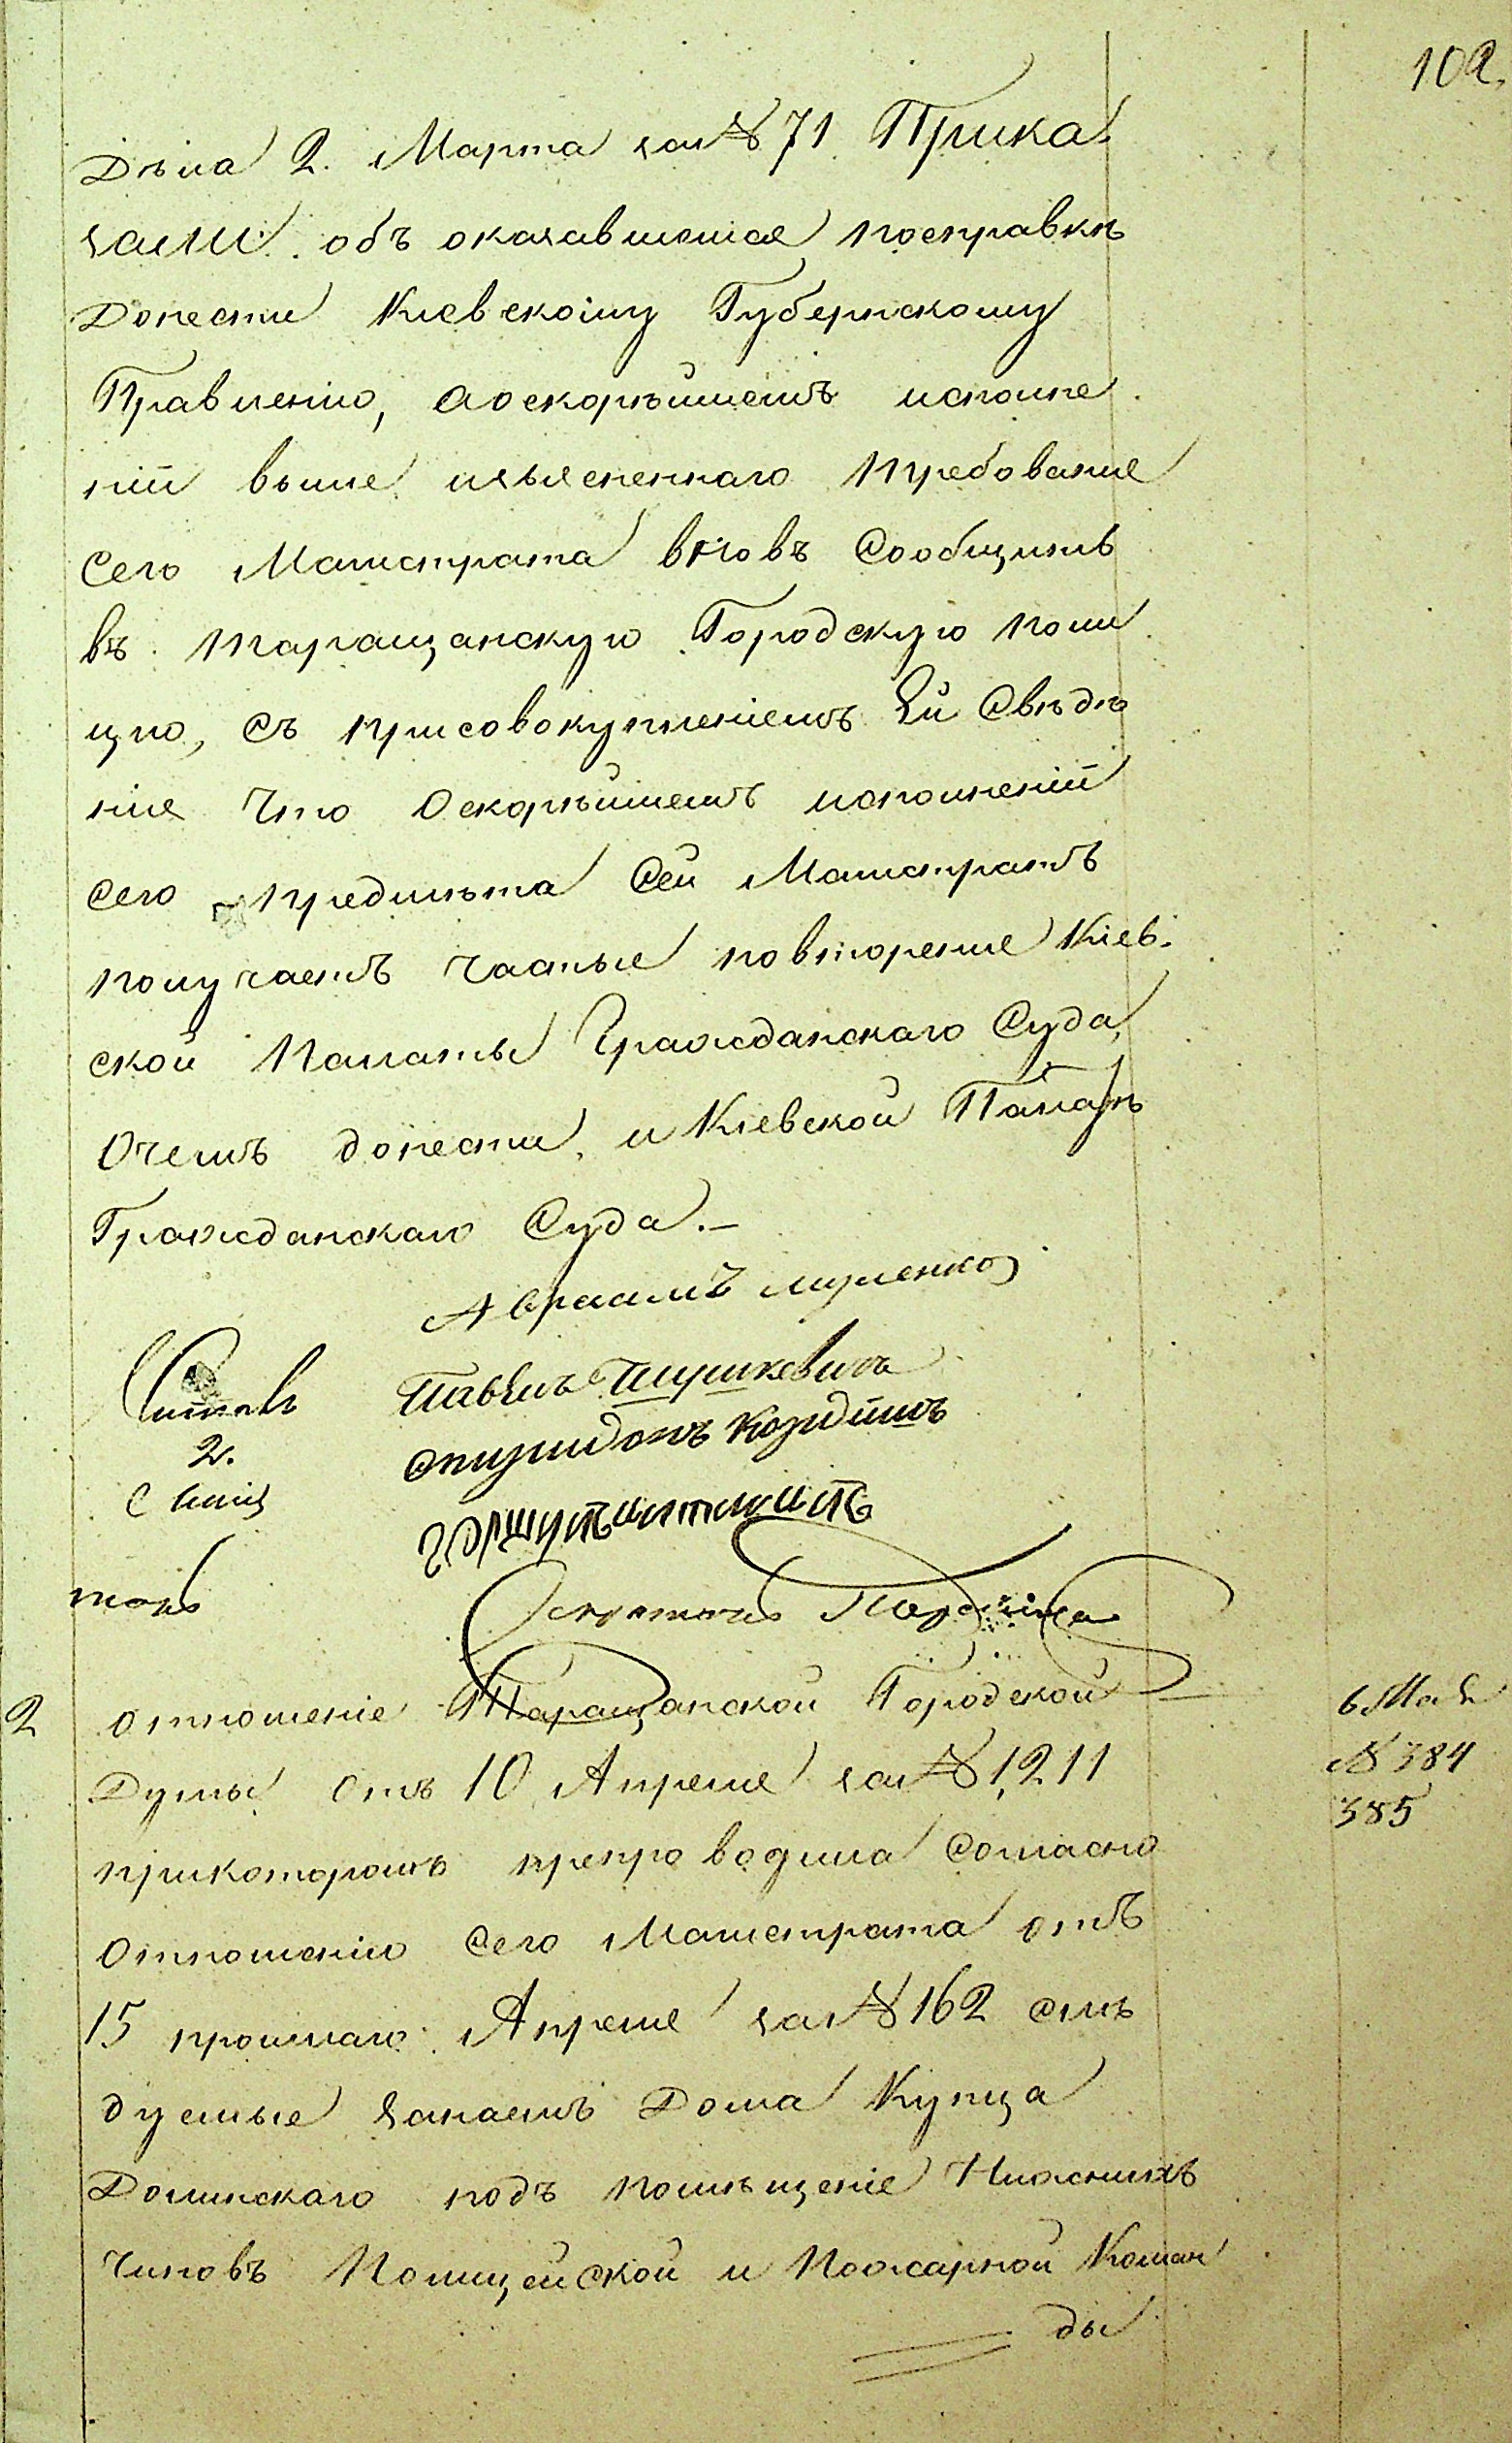 102.
Дѣла 2. Марта за № 71. Прика
зали: объ оказавшемся посправкѣ
Донести Кіевскому Губернскому
Правленію, аоскорѣйшемъ исполне
ніи выше изъясненнаго требованія
сего Магистрата вновь Сообщить
въ Таращанскую Городскую поли
цію, съ присовокупленіемъ Ей Свѣдѣ
нія что оскорѣйшемъ исполненіи
сего предмѣта Сей Магистратъ
получаетъ частые повторенія Кіев.
ской Палаты Гражданскаго Суда,
Очемъ донести, и Кіевской Палатѣ
Гражданскаго Суда.–
Авраамъ
Павелъ
Спиридонъ
2.
Секретарь
2 отношеніе Таращанской Городской
Думы отъ 10 Апреля за № 1,211
прикоторомъ препроводила Согласно
отношенію Сего Магистрата отъ
15 прошлаго Апреля за № 162 слѣ
дуемые занаемъ Дома Купца
Долинскаго подъ помѣщеніе Нижнихъ
Чиновъ Полицейской и Пожарной Коман
ды
6 Мая
№ 384
385